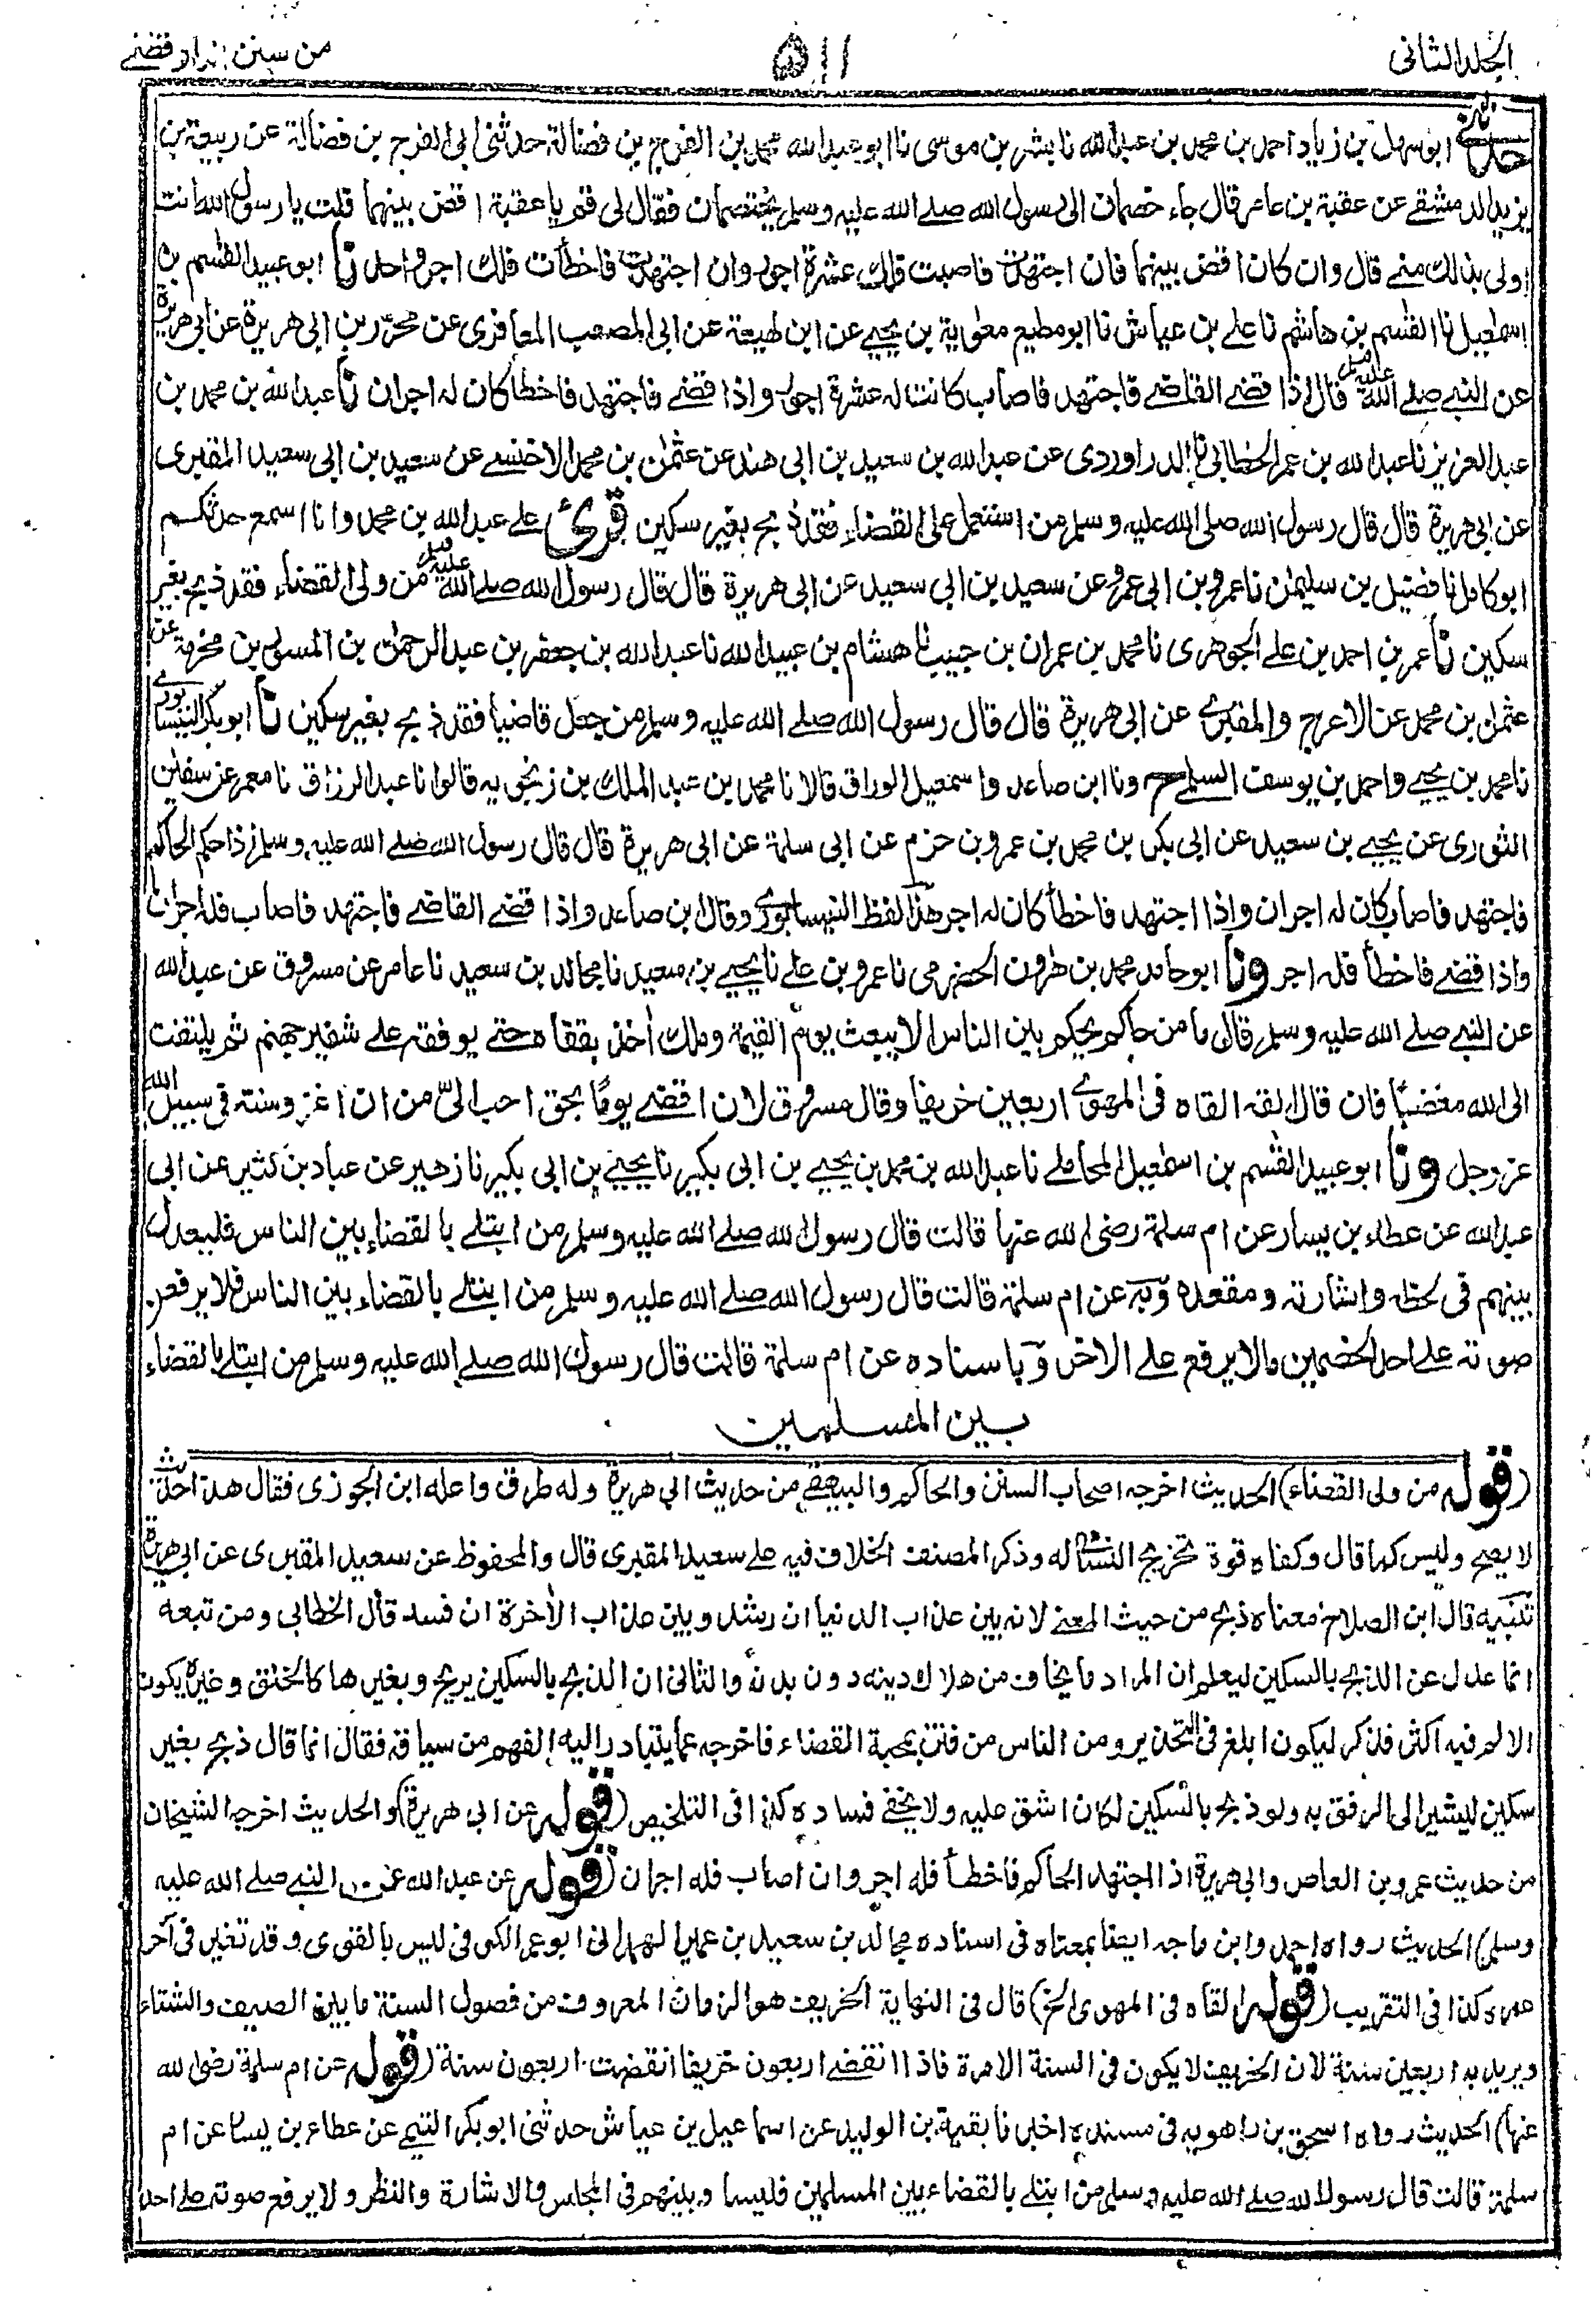 الجلد الثانى
٥١١
من سنن الدارقطنے
حدثنے ابو سهل بن زياد احمد بن محمد بن عبد الله نا بشر بن موسى نا ابو عبد الله محمد بن الفرج بن فضالة حدثنى ابى الفرج بن فضالة عن ربيعة بن
يزيد الدمشقے عن عقبة بن عامر قال جاء خصمان الى رسول الله صلے الله عليه وسلم يختصمان فقال لى قم يا عقبة اقض بينهما قلت يا رسول الله انت
اولى بذلك منے قال وان كان اقض بينهما فان اجتهدت فاصبت فلك عشرة اجور وان اجتهدت فاخطأت فلك اجر واحد نا ابو عبيد القٰسم بن
اسمٰعيل نا القٰسم بن هاشم نا علے بن عياش نا ابو مطيع معٰوية بن يحيے عن ابن لهيعة عن ابى المصعب المعافرى عن محرّر بن ابى هريرة عن ابى هريرة
عن النبے صلے الله عليه وسلم قال اذا قضے القاضے فاجتهد فاصاب كانت له عشرة اجور واذا قضے فاجتهد فاخطأ كان له اجران نا عبد الله بن محمد بن
عبد العزيز نا عبد الله بن عمر الخطابى نا الدراوردى عن عبد الله بن سعيد بن ابى هند عن عثمٰن بن محمد الاخنسے عن سعيد بن ابى سعيد المقبرى
عن ابى هريرة قال قال رسول الله صلى الله عليه وسلم من استعمل على القضاء فقد ذبح بغير سكين قرئ علے عبد الله بن محمد وانا اسمع حدثكم
ابو كامل نا فضيل بن سليمٰن نا عمرو بن ابى عمرو عن سعيد بن ابى سعيد عن ابى هريرة قال قال رسول الله صلے الله عليه وسلم من ولى القضاء فقد ذبح بغير
سكين نا عمر بن احمد بن علے الجوهرى نا محمد بن عمران بن حبيب نا هشام بن عبيد الله نا عبد الله بن جعفر بن عبد الرحمٰن بن المسور بن مخرمة عن
عثمٰن بن محمد عن الاعرج والمقبرے عن ابى هريرة قال قال رسول الله صلے الله عليه وسلم من جعل قاضيا فقد ذبح بغير سكين نا ابو بكر النيسابورے
نا محمد بن يحيے واحمد بن يوسف السلمے ح ونا ابن صاعد واسمعيل الوراق قالا نا محمد بن عبد الملك بن زنجويه قالوا نا عبد الرزاق نا معمر عن سفيٰن
الثورى عن يحيے بن سعيد عن ابى بكر بن محمد بن عمرو بن حزم عن ابى سلمة عن ابى هريرة قال قال رسول الله صلے الله عليه وسلم اذا حكم الحاكم
فاجتهد فاصاب كان له اجران واذا اجتهد فاخطأ كان له اجر هذا لفظ النيسابورے وقال ابن صاعد واذا قضے القاضے فاجتهد فاصاب فله اجران
واذا قضے فاخطأ فله اجر ونا ابو حامد محمد بن هٰرون الحضرمى نا عمرو بن علے نا يحيے بن سعيد نا مجالد بن سعيد نا عامر عن مسروق عن عبد الله
عن النبے صلے الله عليه وسلم قال ما من حاكم يحكم بين الناس الا يبعث يوم القيٰمة وملك اٰخذ بقفاه حتے يوقفه علے شفير جهنم ثم يلتفت
الى الله مغضبًا فان قال القه القاه فى المهوے اربعين خريفا وقال مسروق لان اقضے يومًا بحق احب الىّ من ان اغزو سنة فى سبيل الله
عز وجل ونا ابو عبيد القٰسم بن اسمٰعيل المحاملے نا عبد الله بن محمد بن يحيے بن ابى بكير نا يحيے بن ابى بكير نا زهير عن عباد بن كثير عن ابى
عبد الله عن عطاء بن يسار عن ام سلمة رضى الله عنها قالت قال رسول الله صلے الله عليه وسلم من ابتلے بالقضاء بين الناس فليعدل
بينهم فى لحظه واشارته ومقعده وبه عن ام سلمة قالت قال رسول الله صلے الله عليه وسلم من ابتلے بالقضاء بين الناس فلا يرفعن
صوته علے احد الخصمين مالا يرفع علے الاخر وباسناده عن ام سلمة قالت قال رسول الله صلے الله عليه وسلم من ابتلے بالقضاء
بين المسلمين
(قوله من ولى القضاء) الحديث اخرجه اصحاب السنن والحاكم والبيهقے من حديث ابى هريرة وله طرق واعله ابن الجوزى فقال هذا حديث
لا يصح وليس كما قال وكفاه قوة تخريج النسائى له وذكر المصنف الخلاف فيه على سعيد المقبرى قال والمحفوظ عن سعيد المقبرى عن ابى هريرة
تنبيه قال ابن الصلاح معناه ذبح من حيث المعنے لانه بين عذاب الدنيا ان رشد وبين عذاب الاٰخرة ان فسد قال الخطابى ومن تبعه
انما عدل عن الذبح بالسكين ليعلم ان المراد ما يخاف من هلاك دينه دون بدنه والثانى ان الذبح بالسكين يريح وبغيرها كالخنق وغيره يكون
الالم فيه اكثر فذكر ليكون ابلغ فى التحذير ومن الناس من فتن بمحبة القضاء فاخرجه عما يتبادر اليه الفهم من سياقه فقال انما قال ذبح بغير
سكين ليشير الى الرفق به ولو ذبح بالسكين لكان اشق عليه ولا يخفے فساده كذا فى التلخيص (قوله عن ابى هريرة) والحديث اخرجه الشيخان
من حديث عمرو بن العاص وابى هريرة اذا اجتهد الحاكم فاخطأ فله اجر وان اصاب فله اجران (قوله عن عبد الله عن النبے صلے الله عليه
وسلم) الحديث رواه احمد وابن ماجه ايضا بمعناه فى اسناده مجالد بن سعيد بن عمير الهمدانى ابو عمر الكوفى ليس بالقوى وقد تغير فى آخر
عمره كذا فى التقريب (قوله القاه فى المهوى الخ) قال فى النهاية الخريف هو الزمان المعروف من فصول السنة ما بين الصيف والشتاء
ويريد به اربعين سنة لان الخريف لا يكون فى السنة الا مرة فاذا انقضے اربعون خريفا انقضت اربعون سنة (قوله عن ام سلمة رضى الله
عنها) الحديث رواه اسحق بن راهويه فى مسنده اخبرنا بقية بن الوليد عن اسماعيل بن عياش حدثنى ابو بكر التيمے عن عطاء بن يسار عن ام
سلمة قالت قال رسول الله صلے الله عليه وسلم من ابتلے بالقضاء بين المسلمين فليساو بينهم فى المجلس والاشارة والنظر ولا يرفع صوته على احد